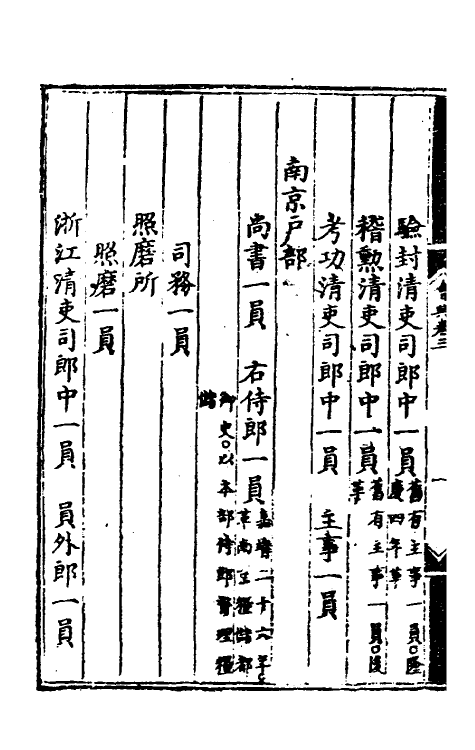 驗封清吏司郎中一員舊有主事一員○隆慶四年革
稽勲清吏司郎中一員舊有主事一員○後革
考功清吏司郎中一員　主事一員
南京戶部
尚書一員　右侍郎一員嘉靖二十六年革南京糧儲都御史○以本部侍郎督理糧儲
司務一員
照磨所
照磨一員
浙江清吏司郎中一員　員外郎一員